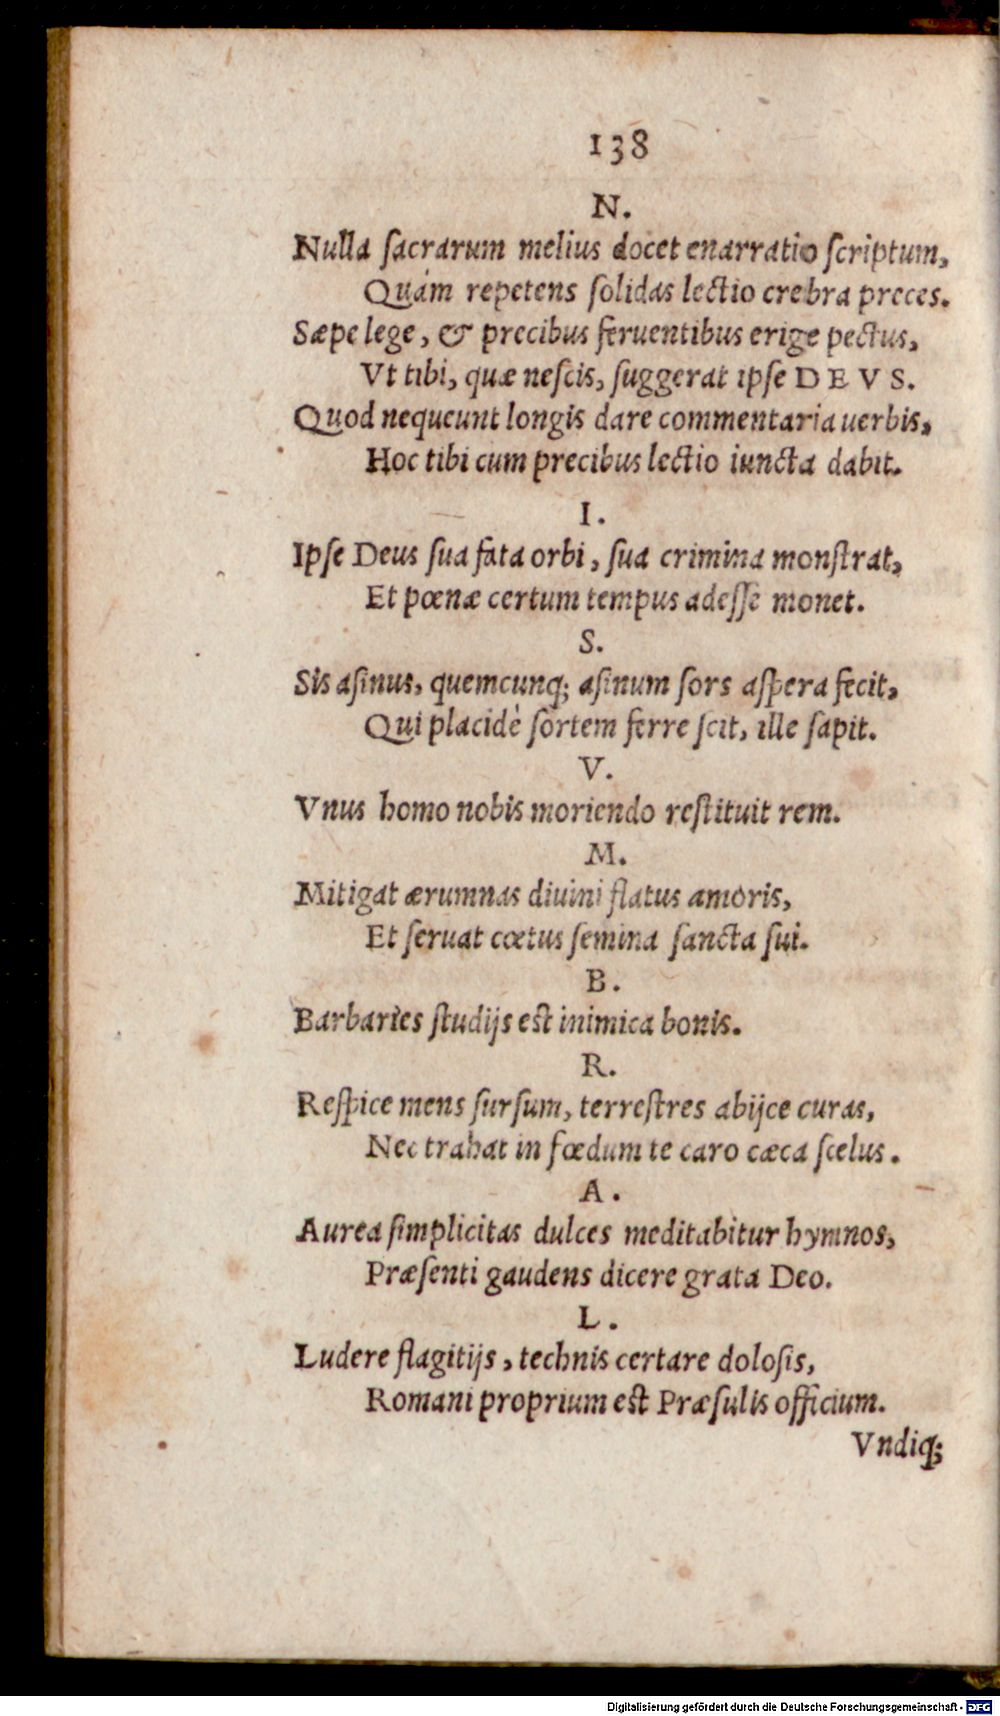 138
N.
Nulla sacrarum melius docet enarratio scriptum,
Quám repetens solidas lectio crebra preces.
Sæpe lege, & precibus feruentibus erige pectus,
Vt tibi, quæ nescis, suggerat ipse DEVS.
Quod nequeunt longis dare commentaria uerbis,
Hoc tibi cum precibus lectio iuncta dabit.
I.
Ipse Deus sua fata orbi, sua crimina monstrat,
Et pœnæ certum tempus adesse monet.
S.
Sis asinus, quemcunq; asinum sors aspera fecit,
Qui placidè sortem ferre scit, ille sapit.
V.
Vnus homo nobis moriendo restituit rem.
M.
Mitigat ærumnas diuini flatus amoris,
Et seruat cœtus semina sancta sui.
B.
Barbaries studijs est inimica bonis.
R.
Respice mens sursum, terrestres abijce curas,
Nec trahat in fœdum te caro cæca scelus.
A.
Aurea simplicitas dulces meditabitur hymnos,
Præsenti gaudens dicere grata Deo.
L.
Ludere flagitijs, technis certare dolosis,
Romani proprium est Præsulis officium.
Vndiq;
Digitalisierung gefördert durch die Deutsche Forschungsgemeinschaft - DFG